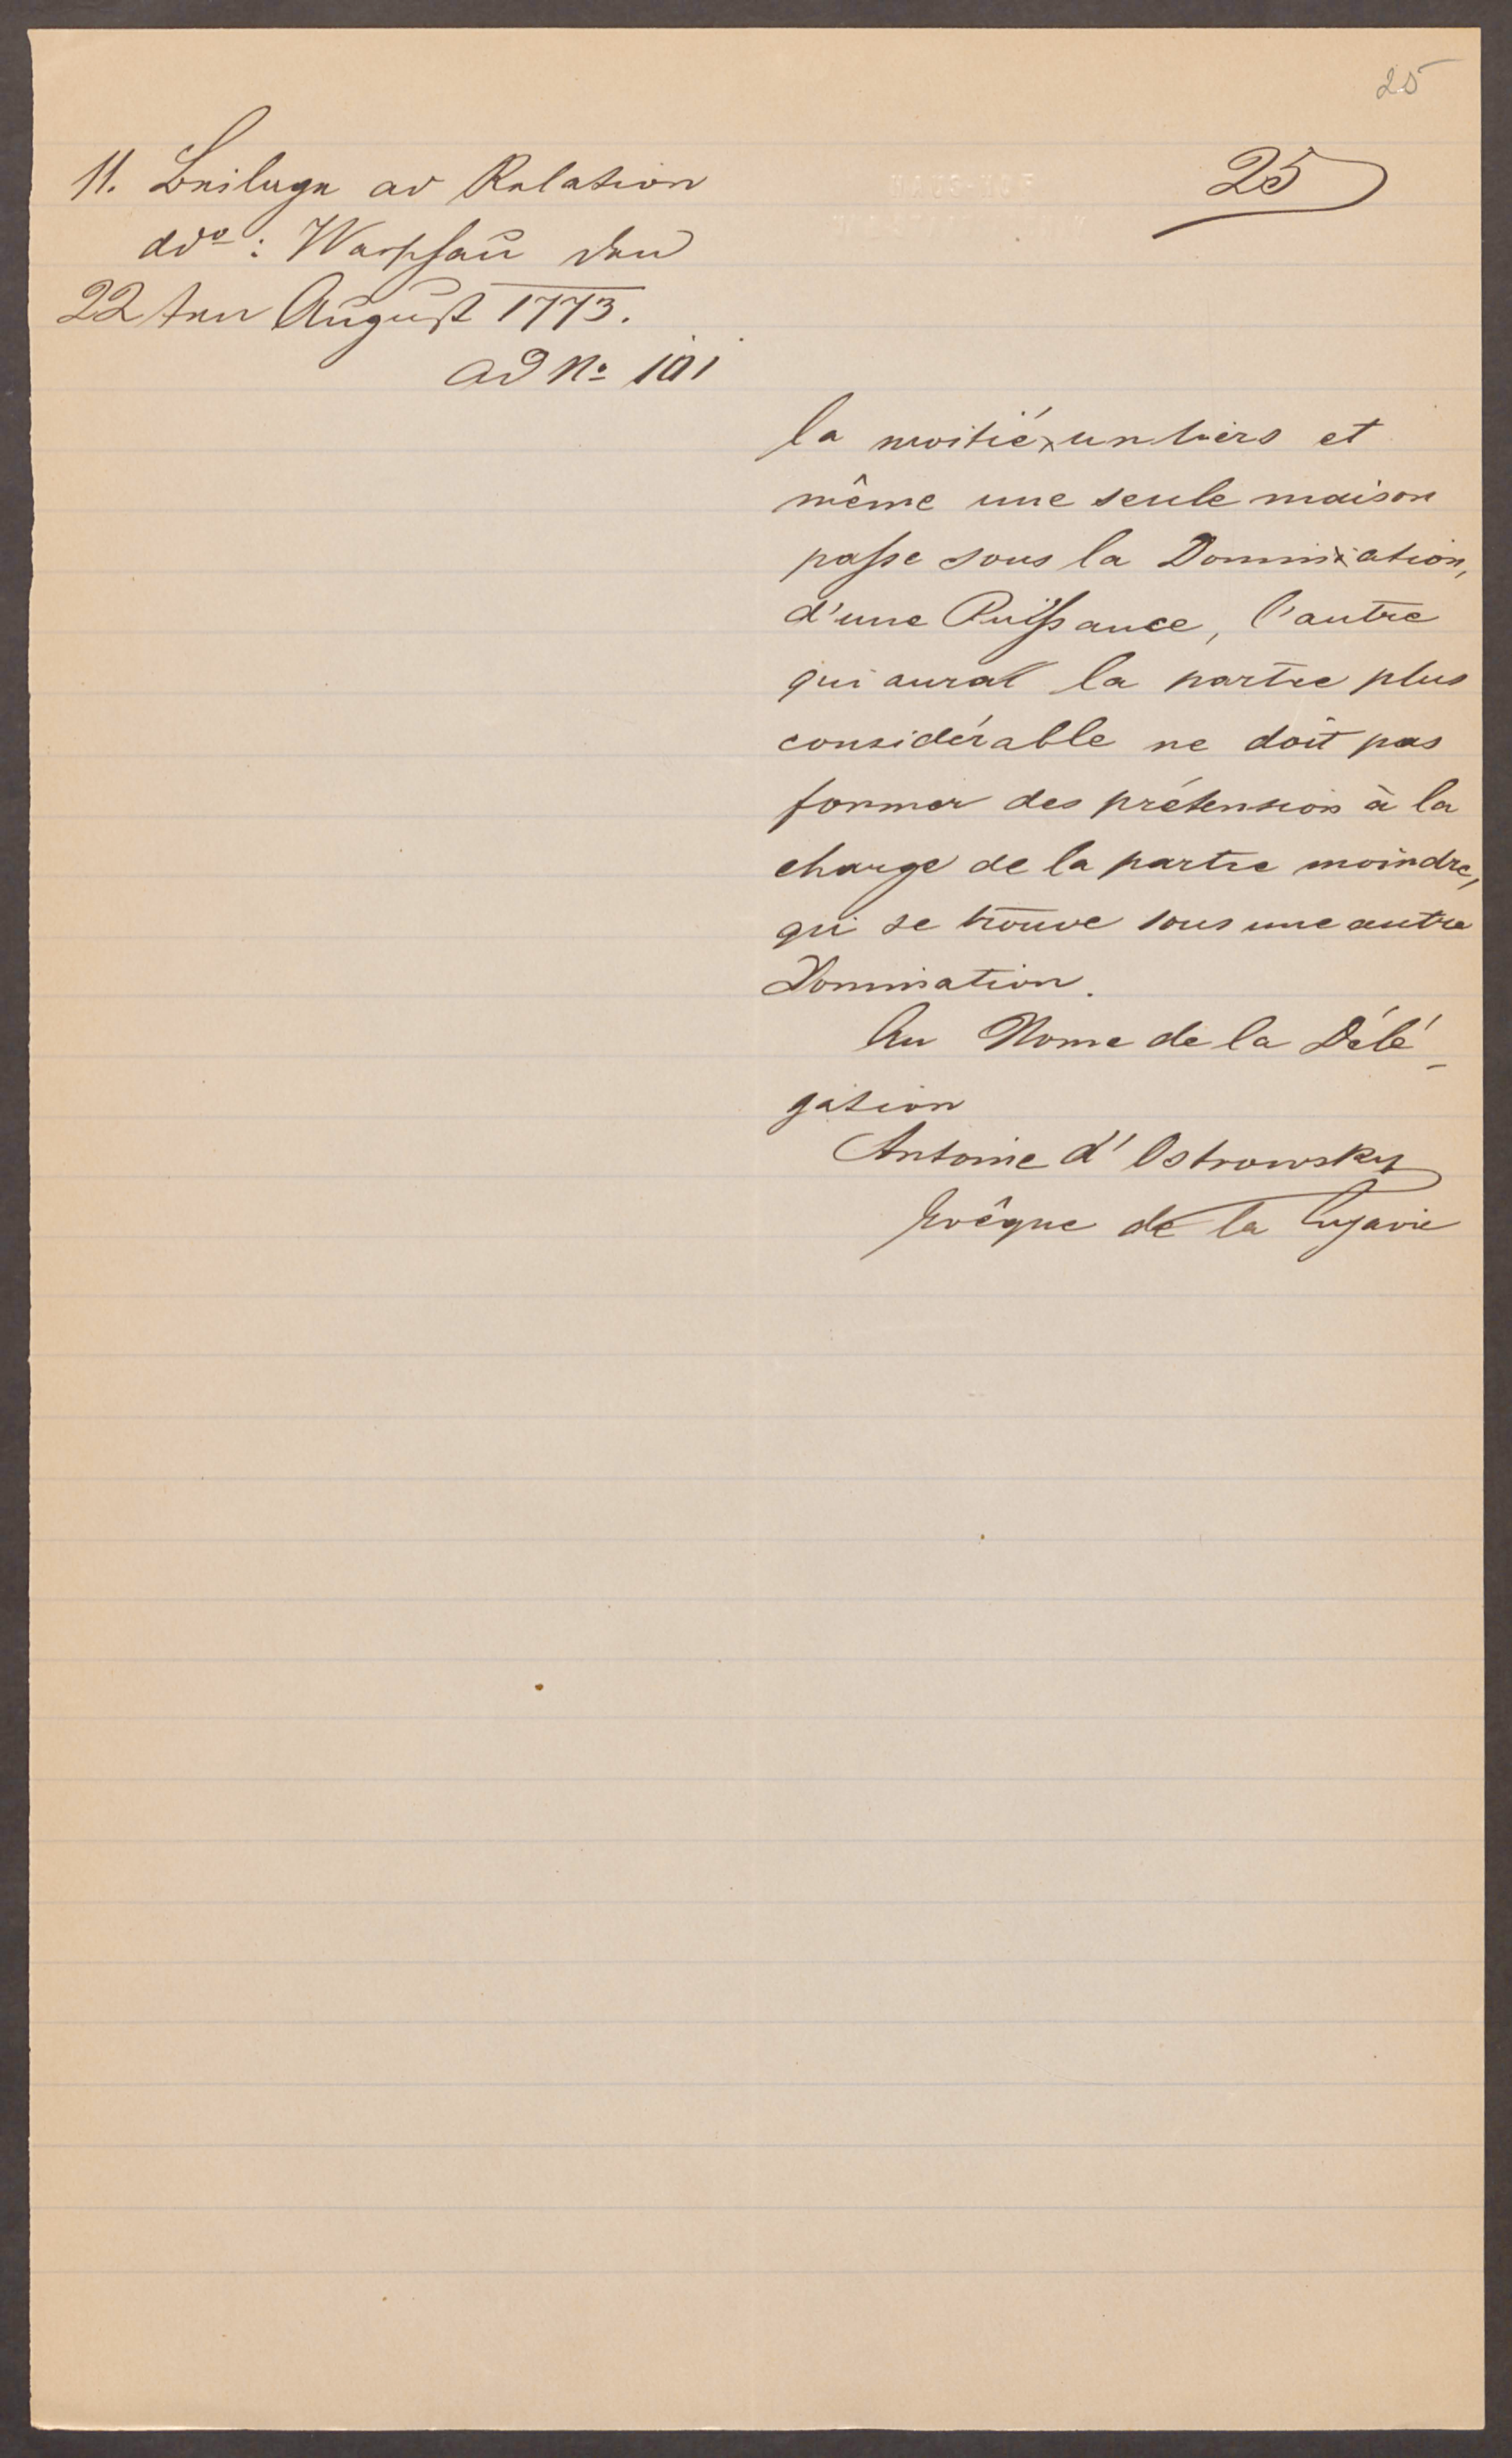 25
25
11. Beilage ad Relation
ddo: Warschau den
22ten August 1773.
ad No 101
la moitié, un tiers et
même une seule maison
passe sous la Domination,
d'une Puissance, l'autre
qui aurat la partie plus
considérable ne doit pas
former des prétension à la
charge de la partie moindre,
qui se trouve sous une autre
Domination.
Au Nome de la Délé-
gation
Antoine d'Ostrowsky
Evêque de la Cujavie